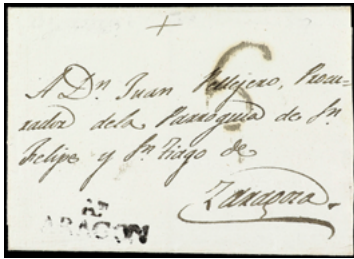 6
A Dn. Juan Pellejero, Procu-
rador de la Parroquia de Sn.
Felipe y Sn. Tiago de
Zaragoza.
ARAGON